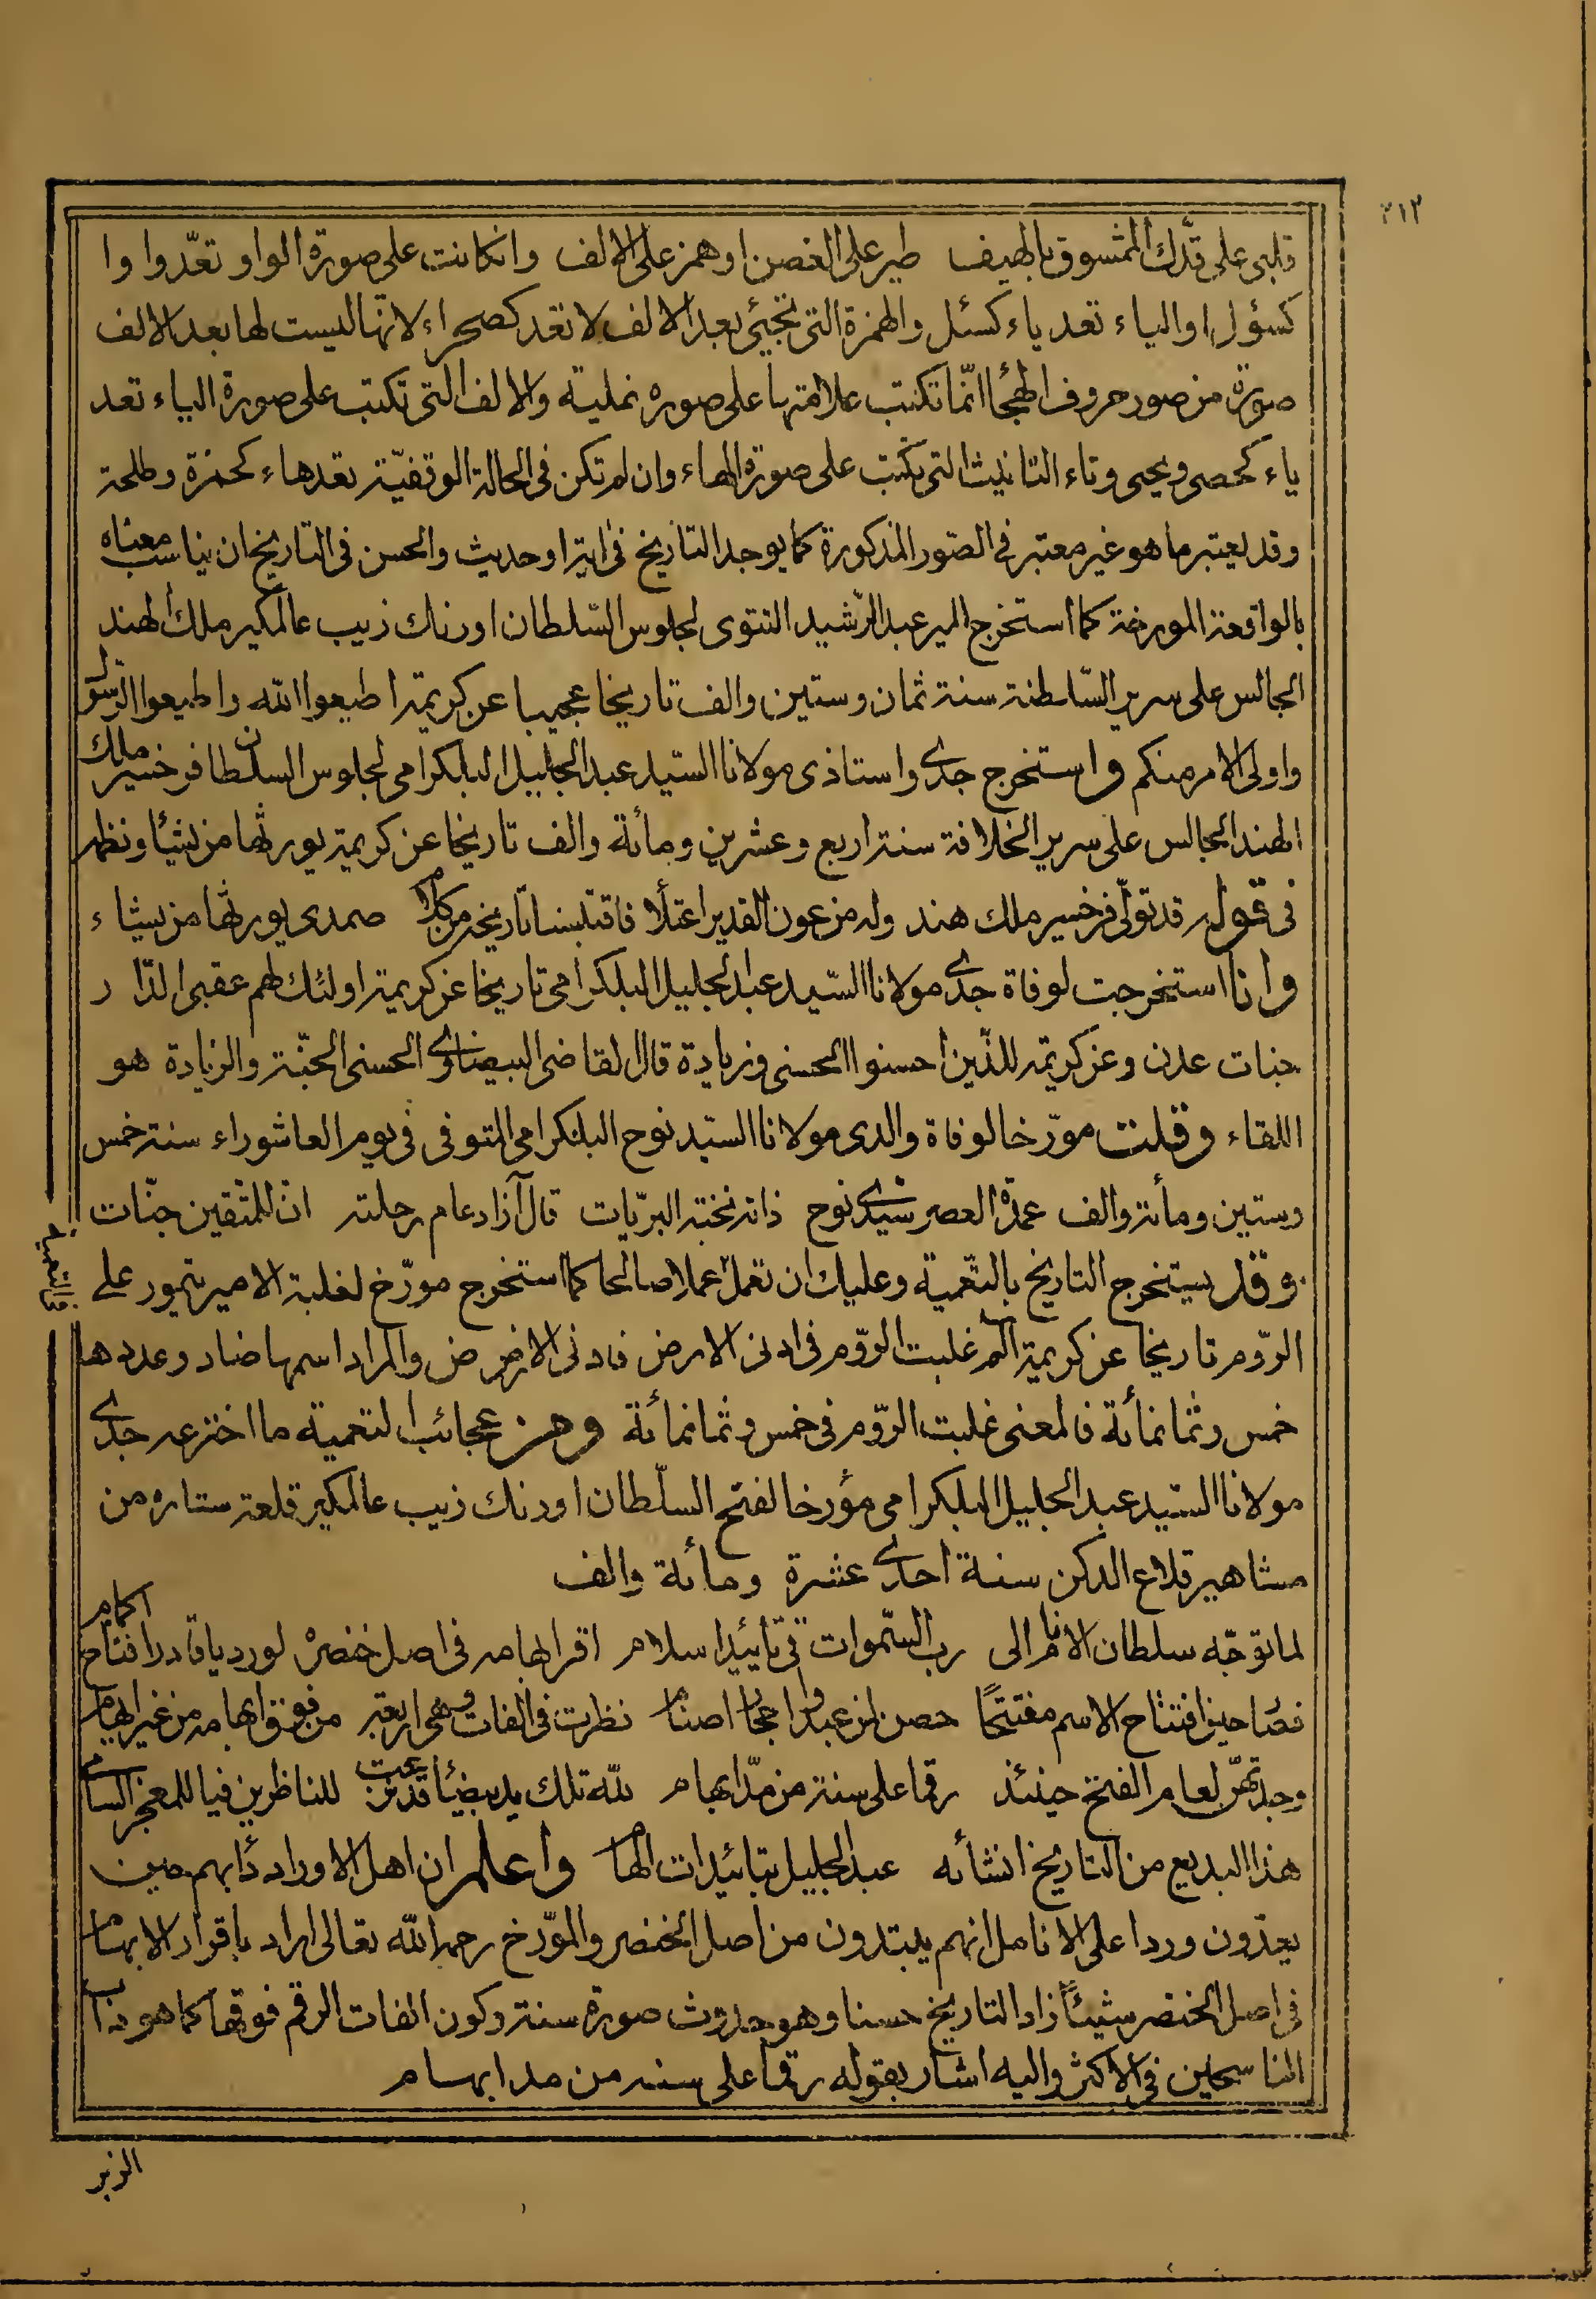 ٢١٢
قلبى على قدّك الممشوق بالهيف طير على الغصن او همز على الالف وان كانت على صورة الواو تعدّ واوا
كسؤل او الياء تعد ياء كسئل والهمزة التى تجيئ بعد الالف لا تعد كصحراء لانها ليست لها بعد الالف
صورة من صور حروف الهجا انّما تكتب علامتها على صوره نمليته والالف التى تكتب على صورة الياء تعد
ياء كحصى ويحيى وتاء التانيث التى تكتب على صورة الهاء وان لم تكن فى الحالة الوقفيّة تعد هاء كحمزة وطلحة
وقد يعتبر ما هو غير معتبر فى الصّور المذكورة كما يوجد التاريخ فى اية او حديث والحسن فى التاريخ ان يناسب معناه
بالواقعة المورخة كما استخرج المير عبد الرّشيد التتوى لجلوس السّلطان اورنك زيب عالمكير ملك الهند
الجالس على سرير السّلطنة سنة ثمان وستين والف تاريخا عجيبا عن كريمة اطيعوا الله واطيعوا الرّسول
واولى الامر منكم واستخرج جدى واستاذى مولانا السّيد عبد الجليل البلكرامى لجلوس السلطان فرخسير ملك
الهند الجالس على سرير الخلافة سنة اربع وعشرين ومائة والف تاريخا عن كريمة يورثها من يشاء ونظم
فى قوله قد تولّى فرخسير ملك هند وله من عون القدير اعتلا فاقتبسنا تاريخه من كلام صمدى يورثها من يشاء
وانا استخرجت لوفاة جدى مولانا السّيد عبد الجليل البلكرامى تاريخا عن كريمة اولئك لهم عقبى الدّار
جنات عدن وعن كريمة للذّين احسنوا الحسنى وزيادة قال القاضى البيضاوى الحسنى الجنّة والزيادة هو
اللقاء وقلت مورّخا لوفاة والدى مولانا السيّد نوح البلكرامى المتوفى فى يوم العاشوراء سنة خمس
وستين ومأتة والف عمدة العصر سيّدى نوح ذاته نخبة البريّات قال آزاد عام رحلته انّ للمتّقين جنّات
وقد يستخرج التاريخ بالتعمية وعليك ان تعمل عملا صالحا كما استخرج مورّخ لغلبة الامير تيمور على
الرّوم تاريخا عن كريمة الم غلبت الرّوم فى ادنى الارض فادنى الارض ض والمراد اسمها ضاد وعددها
خمس وثمانمائة فالمعنى غلبت الرّوم فى خمس وثمانمائة ومن عجائب التعمية ما اخترعه جدى
مولانا السّيد عبد الجليل البلكرامى مؤرخا لفتح السلّطان اورنك زيب عالمكير قلعة ستاره من
مشاهير قلاع الدكن سنة احدى عشرة ومائة والف
لما توجّه سلطان الانام الى ربّ السّموات فى تأييد اسلام اقر ابهامه فى اصل خنصره لورد يا قادر افتتاح اكمام
نصا حين افتتاح الاسم مفتتحًا حصن لمن عبدوا احجار اصنام نظرت فى الفات وهى اربعة من فوق ابهامه من غير ابهام
وجدتهنّ لعام الفتح حينئذ رقما على سنة من مدّ ابهام للّه تلك يد بيضاء قد نزعت للناظرين فيا للمعجز السامى
هذا البديع من التاريخ انشأه عبد الجليل بتائيدات الهام واعلم ان اهل الاوراد دأبهم حين
يعدّون وردا على الانامل انهم يبتدون من اصل الخنصر والمورّخ رحمه الله تعالى اراد باقرار الابهام
فى اصل الخنصر شيئاً زاد التاريخ حسنا وهو حدوث صورة سنة وكون الفات الرقم فوقها كما هو داب
الناسخين فى الاكثر واليه اشار بقوله رقما على سنه من مد ابهام
الزبر